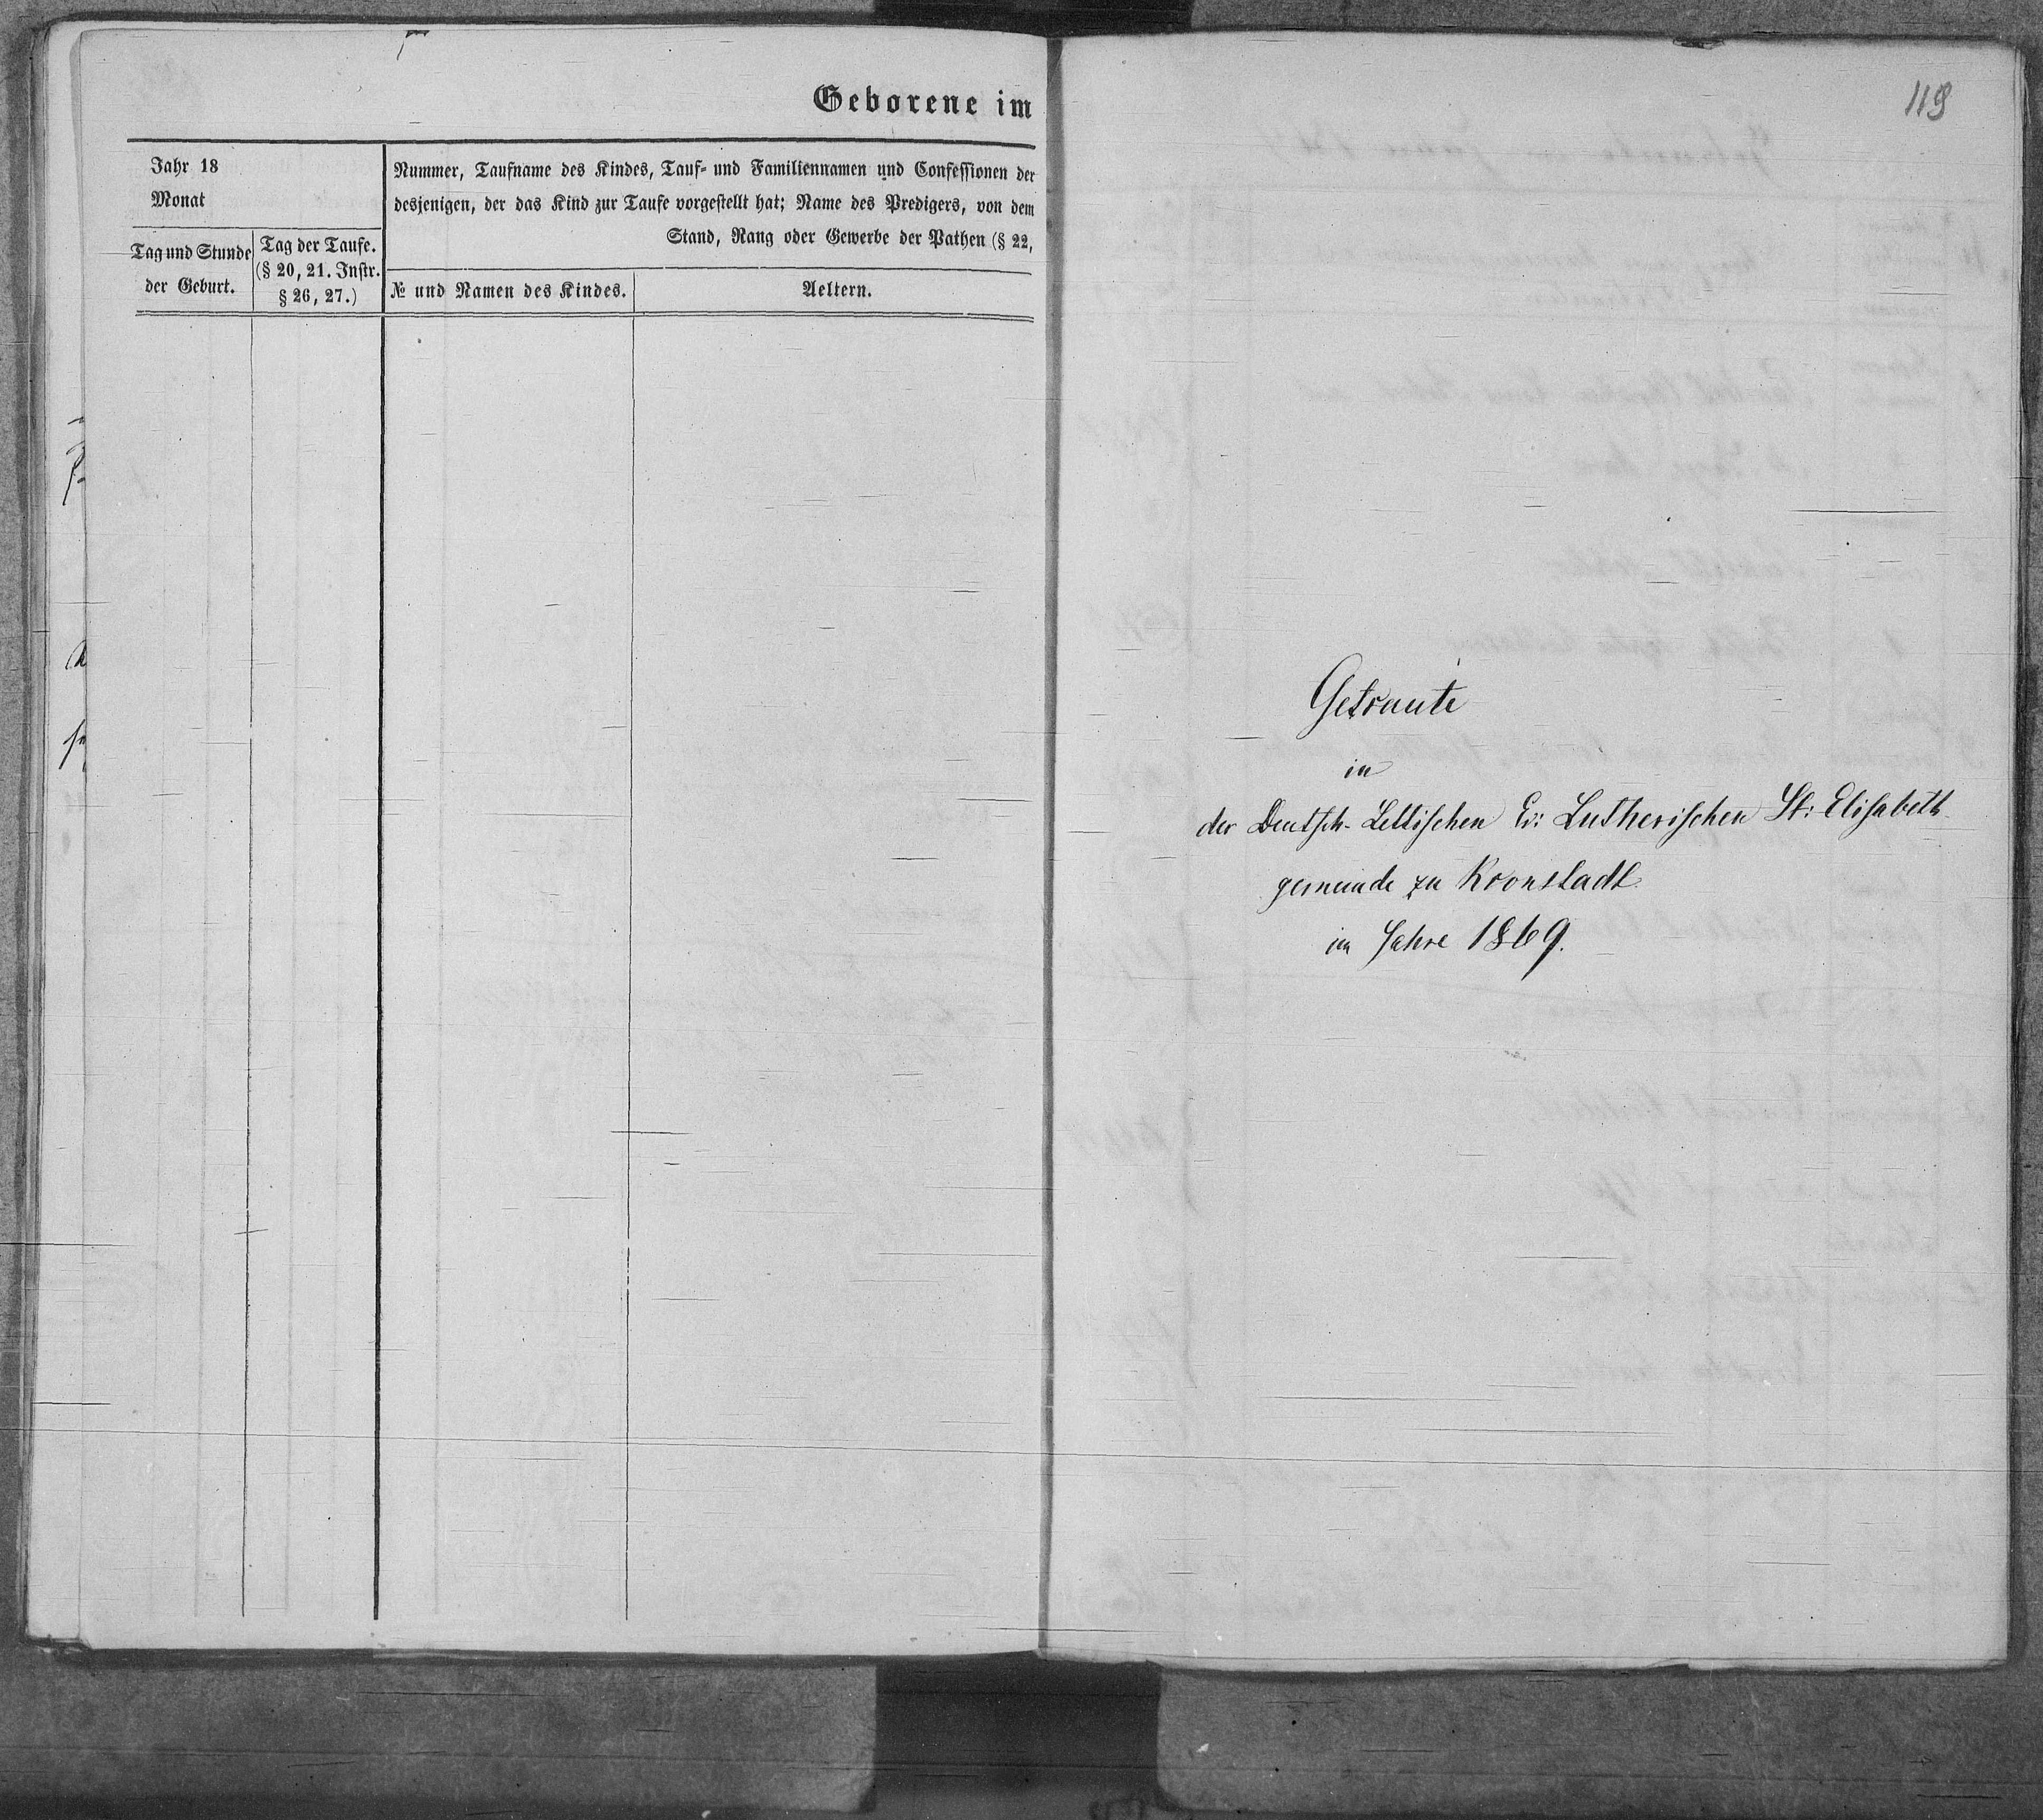 Geborene im
Jahr 18
Monat
Tag und Stunde
der Geburt.
Tag der Taufe.
(§ 20, 21. Instr.
§ 26, 27.)
Nummer, Taufname des Kindes, Tauf- und Familiennamen und Confessionen der
desjenigen, der das Kind zur Taufe vorgestellt hat; Name des Predigers, von dem
Stand, Rang oder Gewerbe der Pathen (§ 22,
№ und Namen des Kindes.
Aeltern.
119
Getraute
in
der Deutsch-Lettischen Ev: Lutherischen St: Elisabeth-
gemeinde zu Kronstadt
im Jahre 1869.